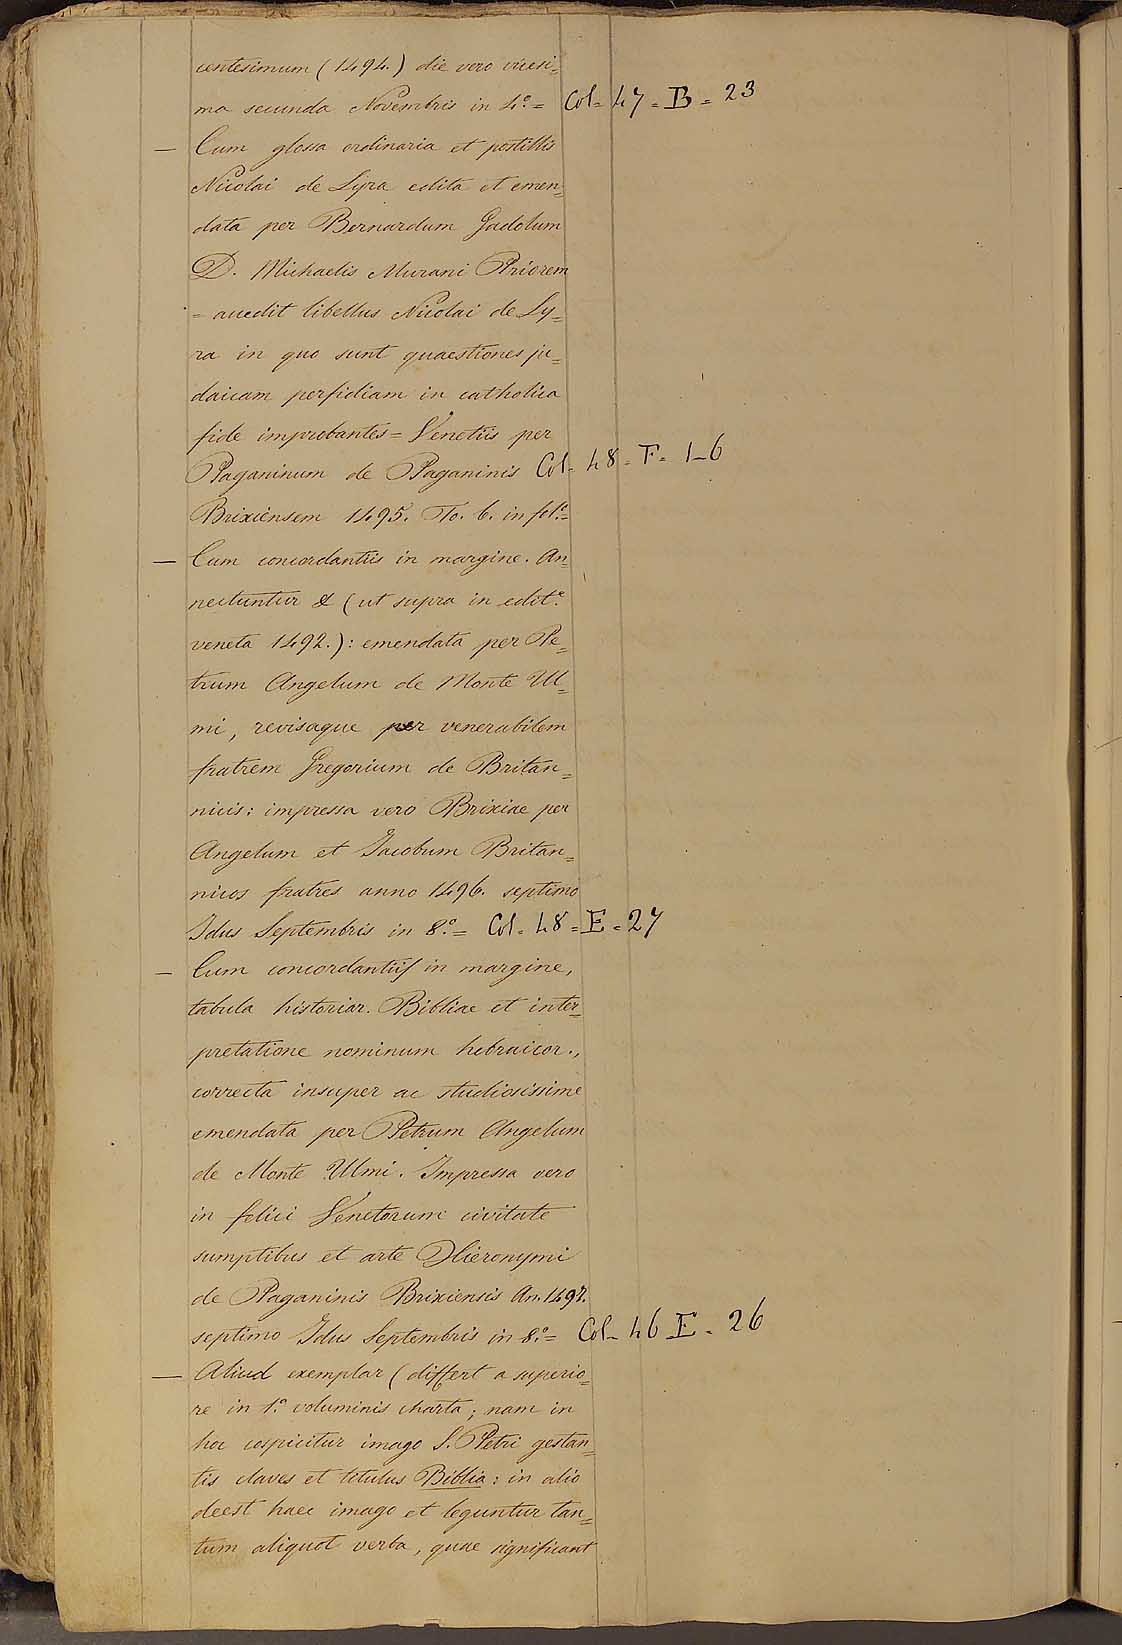 centesimum (1494.) die vero vicesi=
ma secunda Novembris in 4.º = Col= 47 = B = 23
— Cum glossa ordinaria et postillis
Nicolai de Lyra edita et emen=
data per Bernardum Gadolum
D. Michaelis Murani Priorem
= accedit libellus Nicolai de Ly=
ra in quo sunt quaestiones ju=
daicam perfidiam in catholica
fide improbantes = Venetiis per
Paganinum de Paganinis Col= 48 = F= 1-6
Brixiensem 1495. To. 6. in fol.º=
— Cum concordantiis in margine. An=
nectuntur & (ut supra in edit.e
veneta 1492.): emendata per Pe=
trum Angelum de Monte Ul=
mi, revisaque per venerabilem
fratrem Gregorium de Britan=
nicis: impressa vero Brixiae per
Angelum et Jacobum Britan=
nicos fratres anno 1496. septimo
Idus Septembris in 8.º= Col= 48=E=27
— Cum concordantiis in margine,
tabula historiar. Bibliae et inter=
pretatione nominum hebraicor.,
correcta insuper ac studiosissime
emendata per Petrum Angelum
de Monte Ulmi. Impressa vero
in felici Venetorum civitate
sumptibus et arte Hieronymi
de Paganinis Brixiensis An. 1497.
septimo Idus Septembris in 8.º= Col= 46 E = 26
— Aliud exemplar (differt a superio=
re in 1.ª voluminis charta; nam in
hoc cospicitur imago S. Petri gestan=
tis claves et titulus Biblia: in alio
deest haec imago et leguntur tan=
tum aliquot verba, quae significant